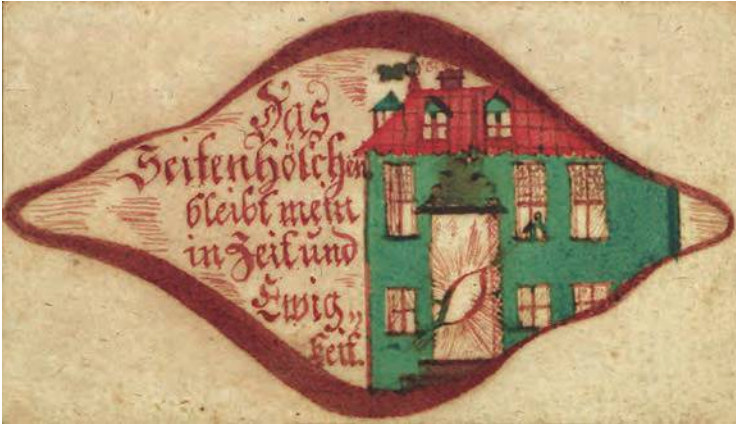 Das
Seitenhölchen
bleibt mein
in Zeit und
Ewig„
keit.